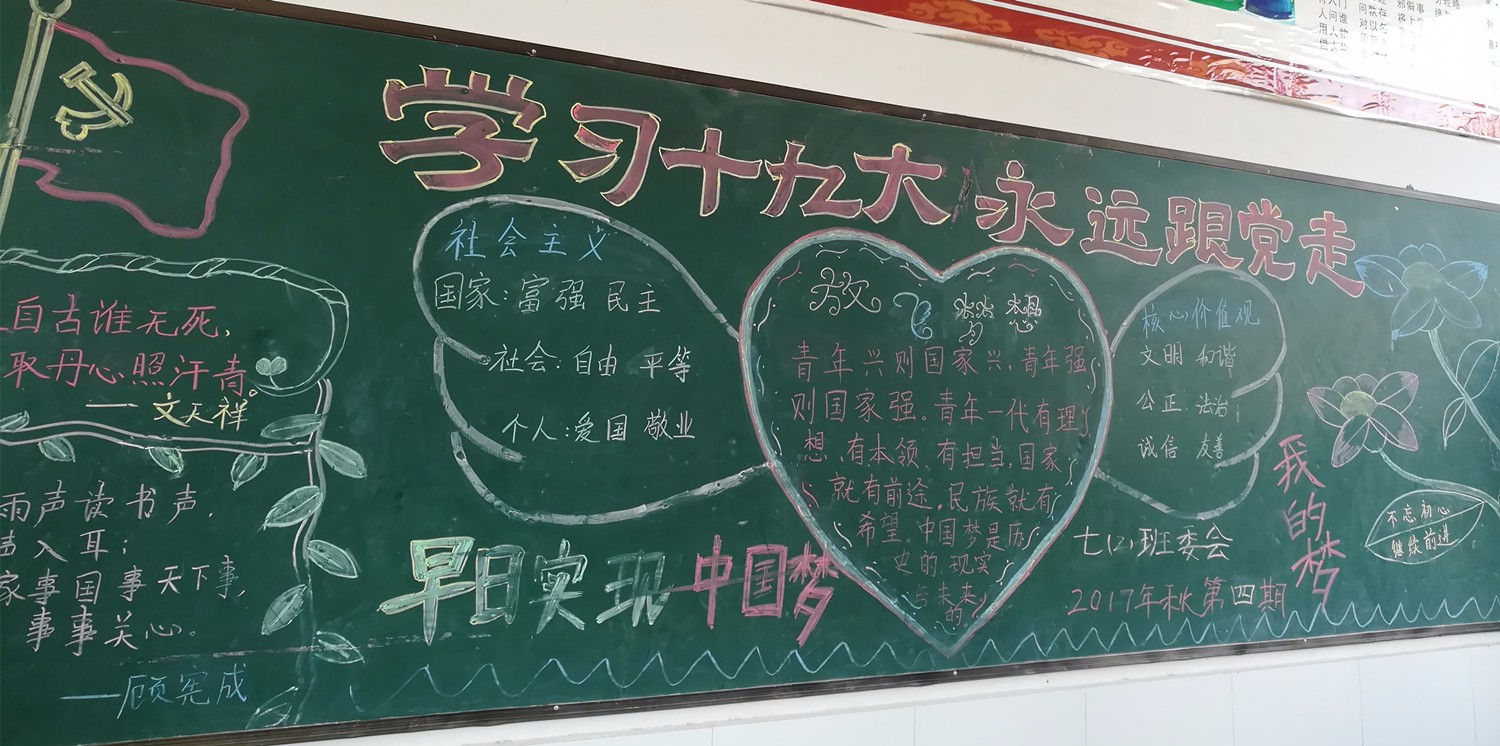 学习十九大 永远跟党走
自古谁无死,
取丹心照汗青。
——文天祥
雨声读书声,
声入耳;
家事国事天下事,
事事关心。
——顾宪成
社会主义
国家:富强 民主
社会:自由 平等
个人:爱国 敬业
早日实现中国梦
放飞梦想
青年兴则国家兴,青年强
则国家强。青年一代有理
想,有本领,有担当,国家
就有前途,民族就有
希望。中国梦是历
史的,现实
未来
的
核心价值观
文明 和谐
公正 法治
诚信 友善
七(2)班委会
2017年秋第四期
我的梦
不忘初心
继续前进